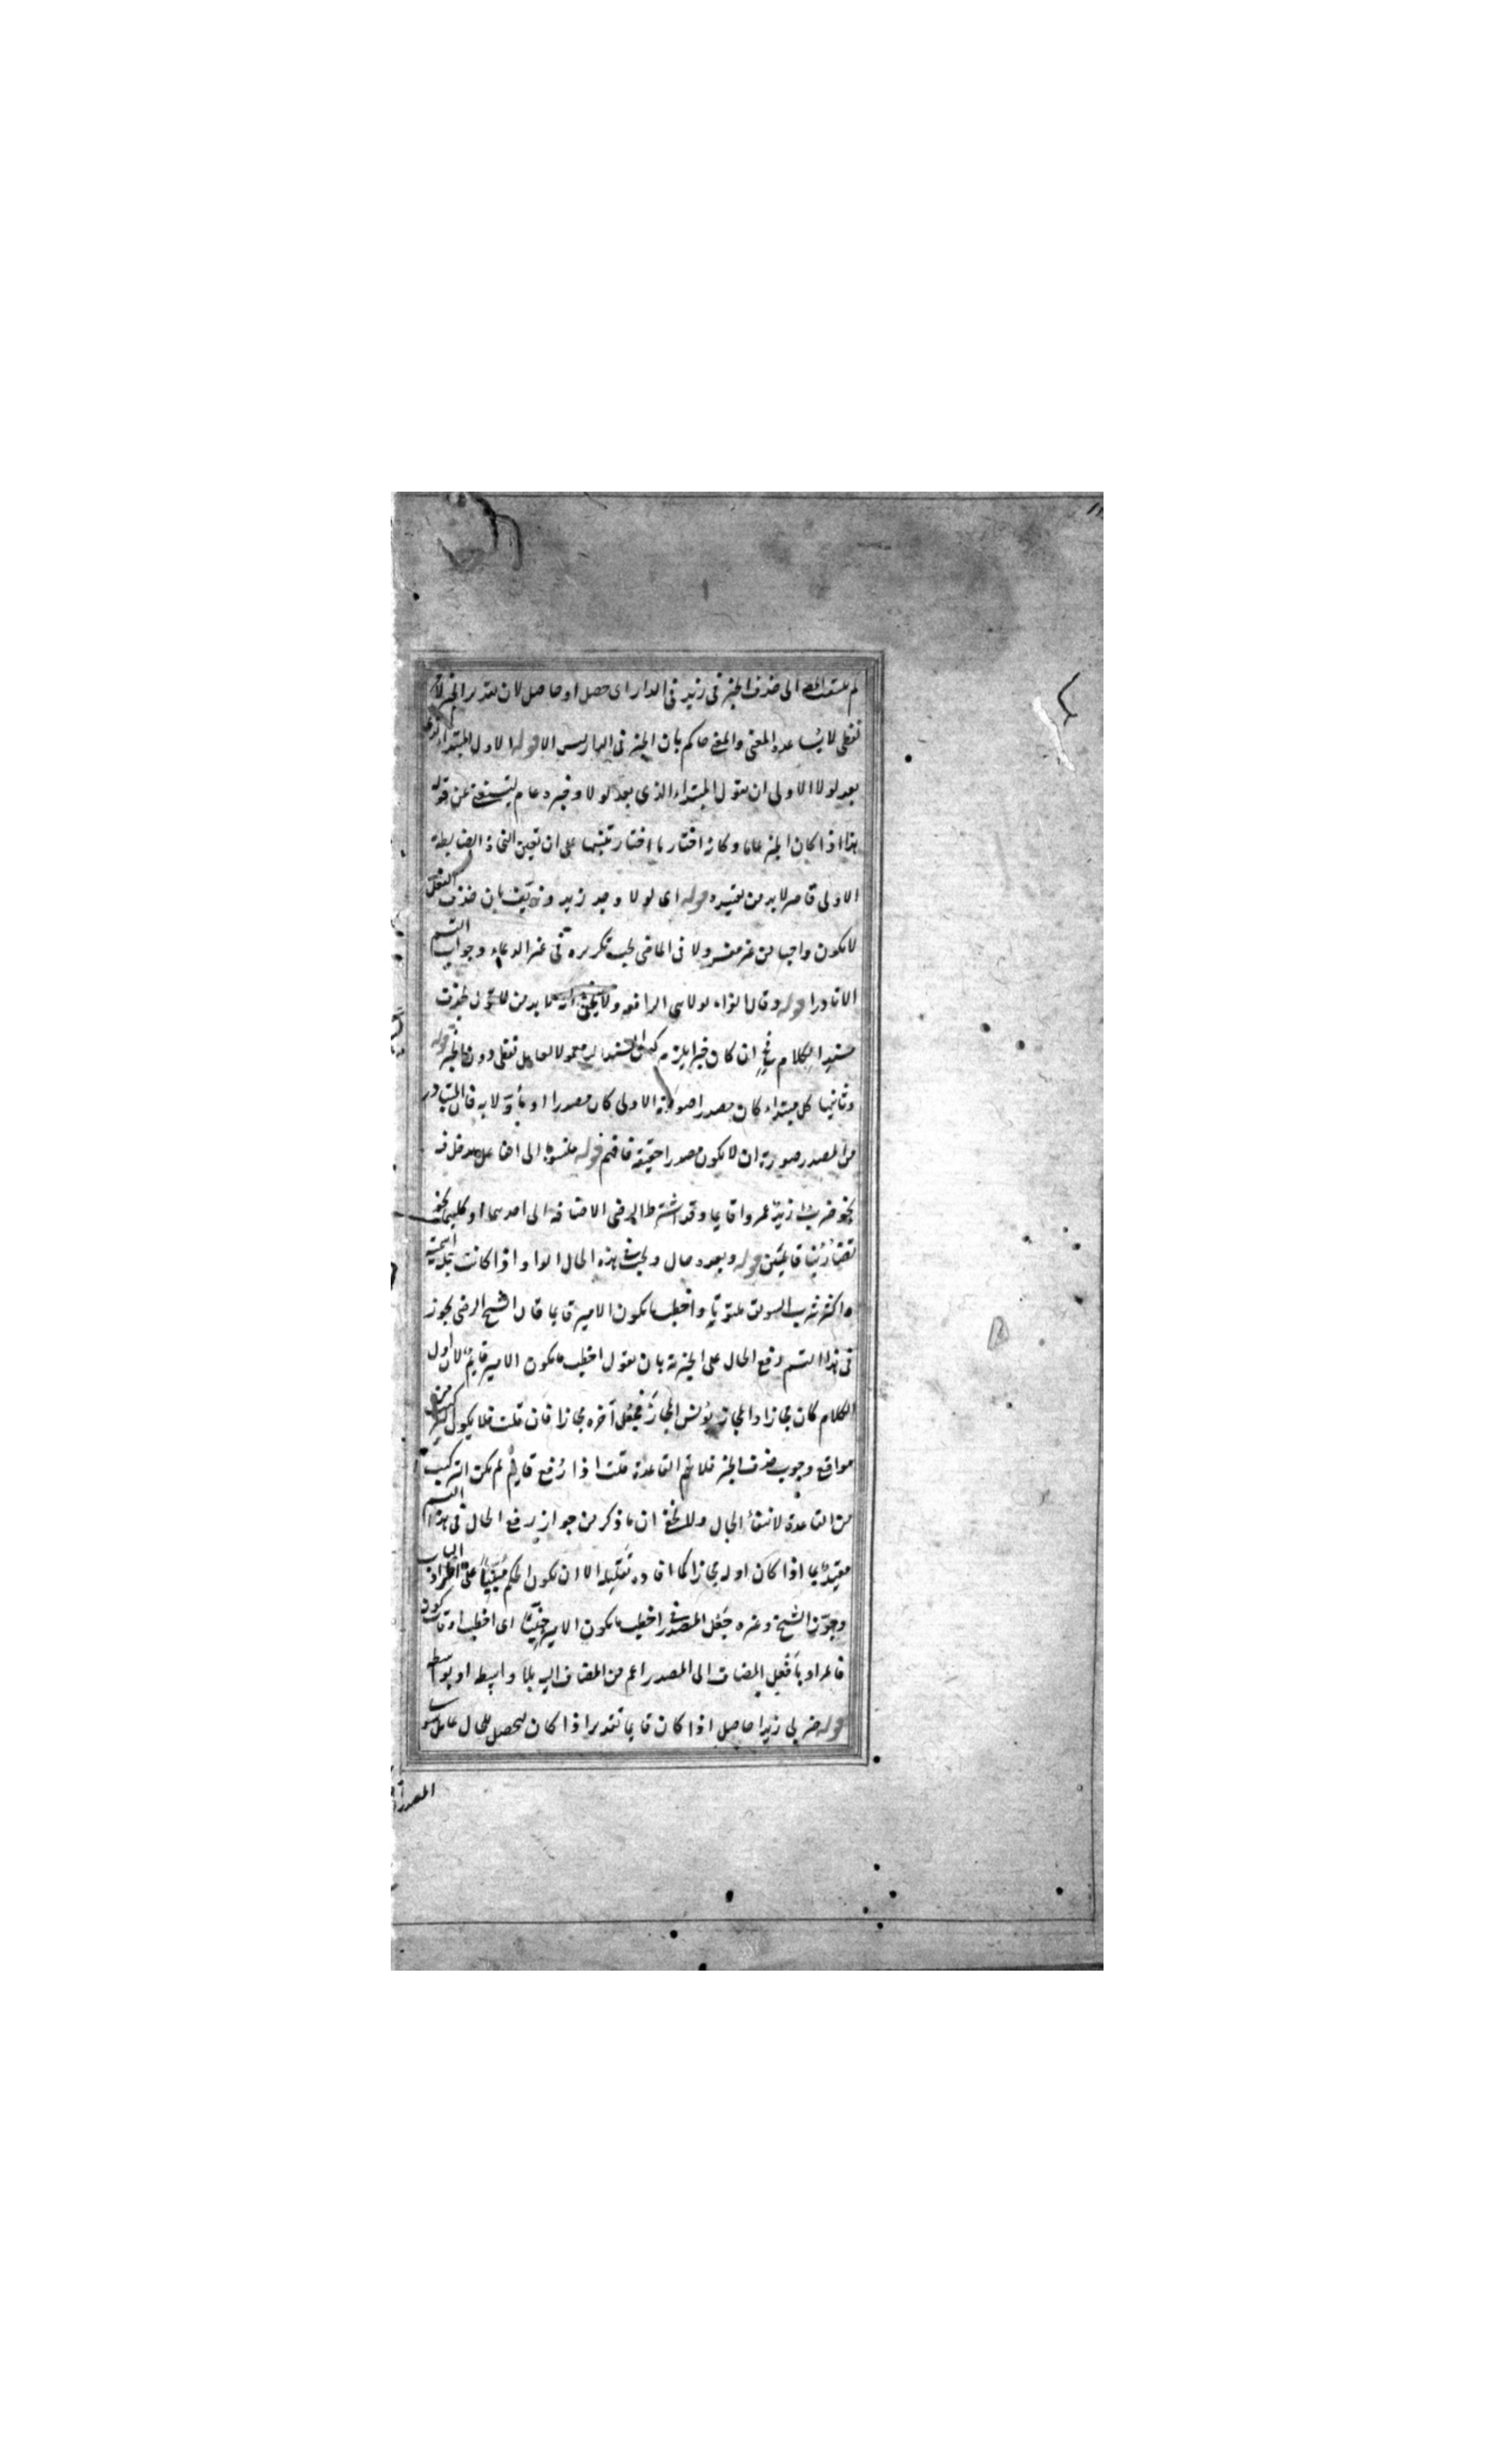 لم يلتفت الى حذف الخبر فى زيد فى الدار اى حصل او حاصل لان تقدير الخبر لامر
لفظى لا يساعده المعنى والمعنى حاكم بان الخبر فى الدار ليس الا قوله الاول المبتداء الذى
بعد لولا الاولى ان يقول المبتداء الذى بعد لولا وخبره عام ليستغنى عن قوله
هذا اذا كان الخبر عاما وكانه اختار ما اختار تنبيها على ان تعيين النحاة الضابطة
الاولى قاصر لا بد من تقييده قوله اى لولا وجد زيد وزيف بان حذف الفعل
لا يكون واجبا من غير مفسر ولا فى الماضى يجب تكريره فى غير الدعاء وجواب القسم
الا نادرا قوله وقال الفراء لولا هى الرافعة ولا يخفى انه لا بد من القول بحذف
مسند الكلام ان كان خبرا يلزمه كون المسند اليه معمولا لعامل لفظى دون الخبر قوله
وثانيها كل مبتداء كان مصدرا صورة الاولى كان مصدرا او بتأويله فان المتبادر
من المصدر صورة ان لا يكون مصدرا حقيقة فافهم قوله منسوبا الى الفاعل
نحو ضرب زيد عمروا قايما وقد اشترط الرضى الاضافة الى احدهما او كليهما نحو
تضاربنا قايمين قوله وبعده حال ويجب فى هذه الحال الواو اذا كانت جملة اسمية
واكثر شربى السويق ملتوتا واخطب ما يكون الامير قايما قال الشيخ الرضى يجوز
فى هذا القسم رفع الحال على الخبرية بان يقول اخطب ما يكون الامير قايم لان اول
الكلام كان مجازا والمجاز يونس المجاز فجعل آخره مجازا فان قلت فلا يكون من
مواقع وجوب حذف الخبر فلا تتم القاعدة قلت اذا رفع قايم لم يكن التركيب
من القاعدة لانتفاء الحال ولا يخفى ان ما ذكر من جواز رفع الحال فى هذا القسم
مقيد بما اذا كان اوله مجازا كما افاده تعليله الا ان يكون الحكم مبنيا على اطراد الباب
وجوز الشيخ وغيره جعل المصدر فى اخطب ما يكون الامير حينا اى اخطب اوقات كون
فالمراد بافعل المضاف الى المصدر اعم من المضاف اليه بلا واسطه او بواسطه
قوله ضربى زيدا حاصل اذا كان قايما تقديرا اذا كان ليحصل للحال عامل سوى
المصدر